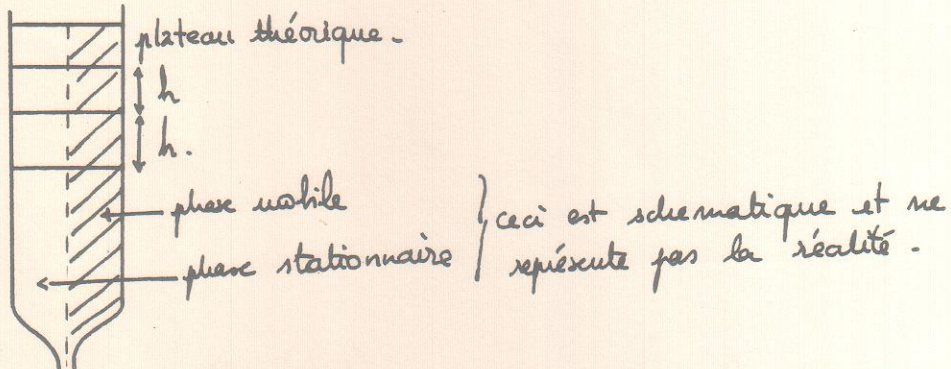 plateau théorique.
h
h.
phase mobile
phase stationnaire
ceci est schematique et ne
représente pas la réalité.